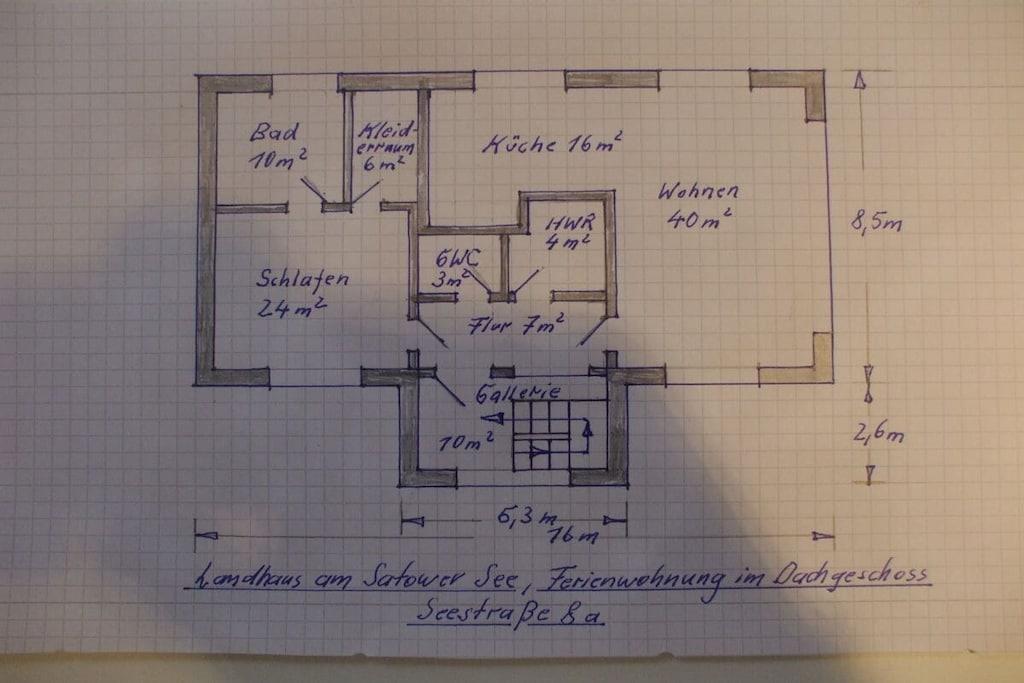 Bad
10 m²
Kleid-
erraum
6 m²
Küche 16 m²
Wohnen
40 m²
8,5 m
HWR
4 m²
GWC
3 m²
Schlafen
24 m²
Flur 7 m²
Gallerie
10 m²
2,6 m
6,3 m
16 m
Landhaus am Satower See, Ferienwohnung im Dachgeschoss
Seestraße 8 a